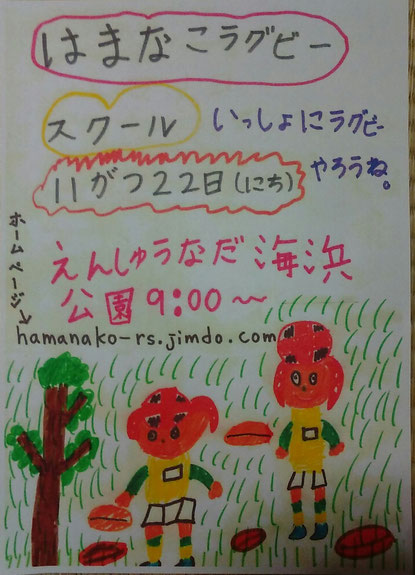 はまなこラグビー
スクール
いっしょにラグビー
やろうね。
11がつ22日(にち)
えんしゅうなだ海浜
公園9:00〜
ホームページ→
hamanako-rs.jimdo.com